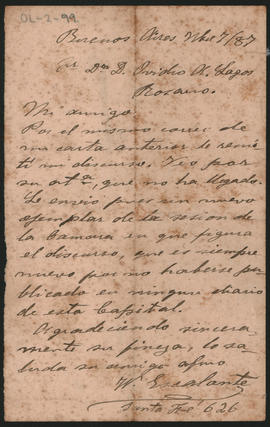 OL-2-99
Buenos Aires, Nbre 7/87
Sr Dn D. Ovidio A. Lagos
Rosario.
Mi amigo
Por el mismo correo de
mi carta anterior le remi-
tí mi discurso. Veo por
su atª, que no ha llegado.
Le envío pues un nuevo
ejemplar de la sesion de
la Cámara en que figura
el discurso, que es siempre
nuevo por no haberse pu-
blicado en ningun diario
de esta Capital.
Agradeciendo sincera
mente su fineza, lo sa-
luda su amigo afmo
W. Escalante
Santa Fé 626